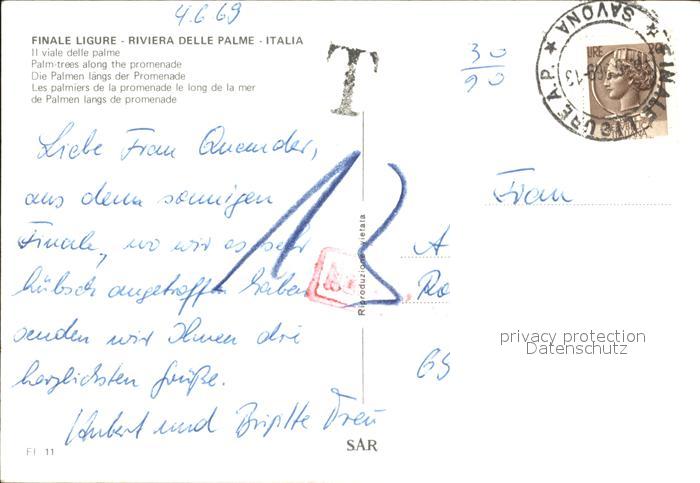 4.6.69
FINALE LIGURE - RIVIERA DELLE PALME - ITALIA
Il viale delle palme
Palm-trees along the promenade
Die Palmen längs der Promenade
Les palmiers de la promenade le long de la mer
de Palmen langs de promenade
T
30
90
FINALE LIGURE A.P. ★ SAVONA ★
LIRE 20
Liebe Frau
aus dem sonnigen
Finale, wo wir es sehr
hübsch angetroffen haben
senden wir Ihnen die
herzlichsten Grüße.
Hubert und Brigitte
Frau
A
Ro
69
13
Riproduzione vietata
privacy protection
Datenschutz
FI 11
SAR